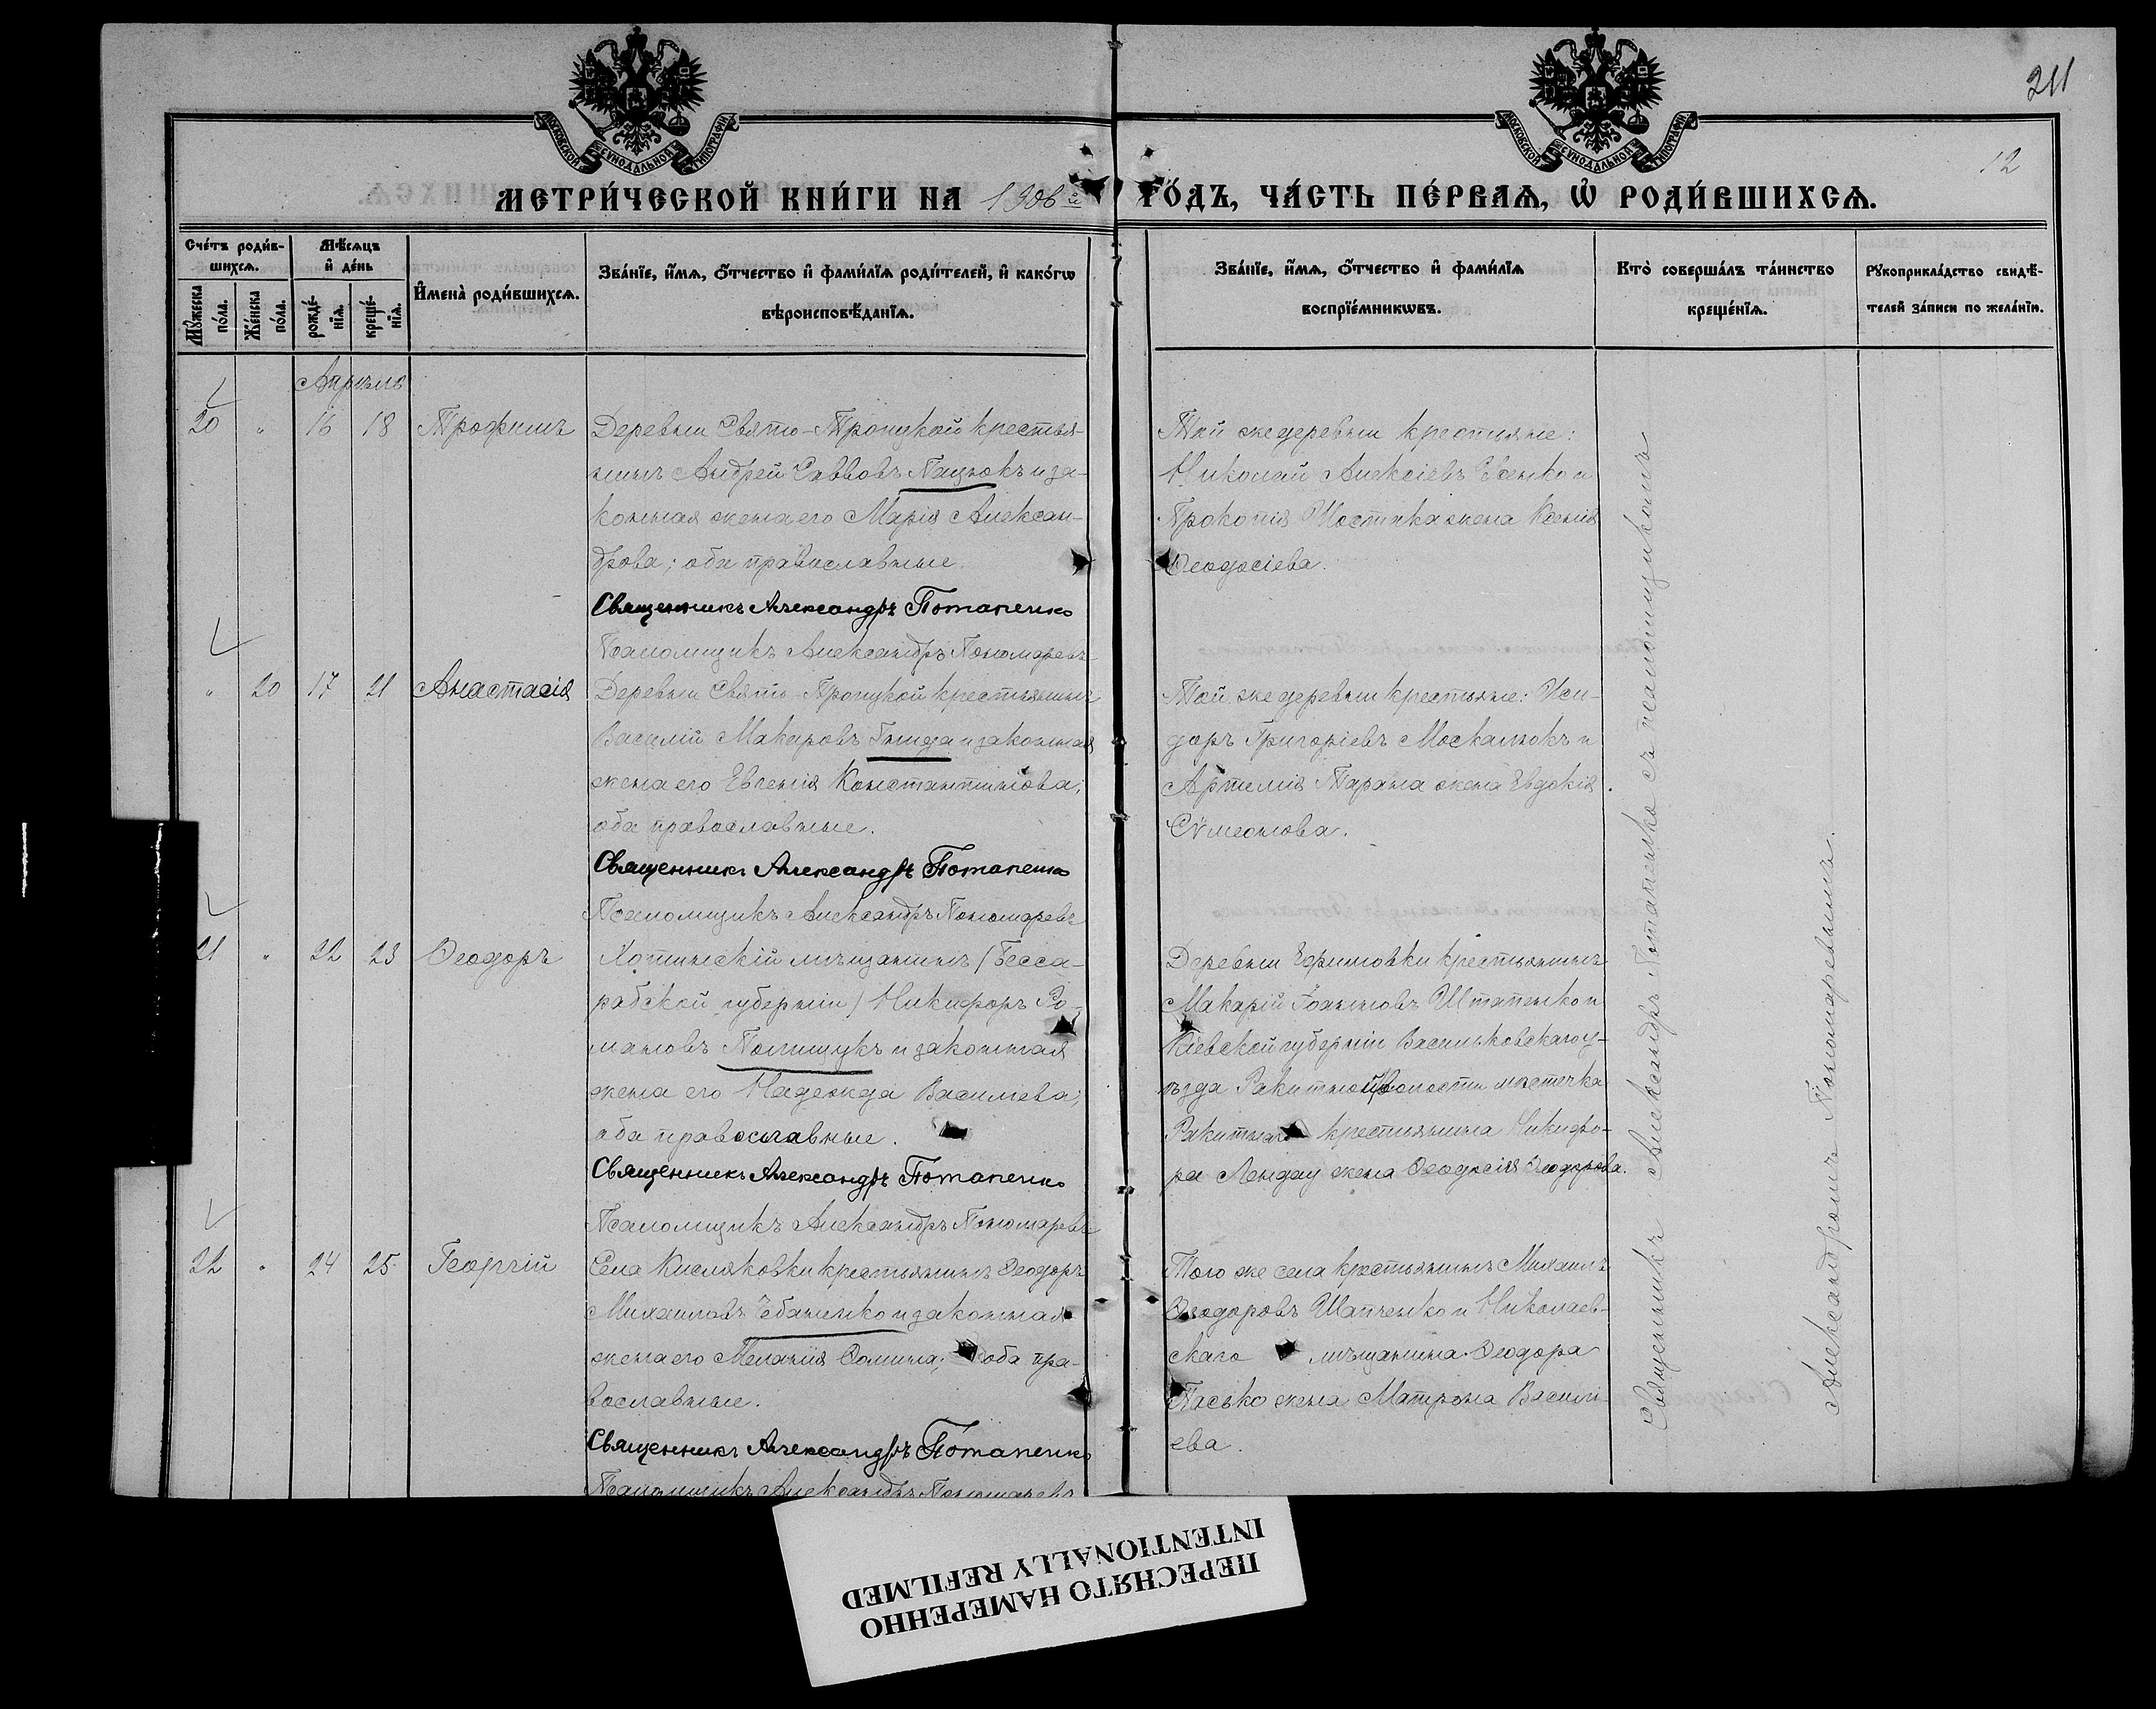 211
12
МОСКОВСКОЙ СѴНОДАЛЬНОЙ ТИПОГРАФІИ
МОСКОВСКОЙ СѴНОДАЛЬНОЙ ТИПОГРАФІИ
МЕТРИ́ЧЕСКОЙ КНИ́ГИ НА 1906й ГО́ДЪ, ЧА́СТЬ ПЕ́РВАѦ, Ѡ҆ РОДИ́ВШИХСѦ.
Сче́тъ роди́в-
шихсѧ.
Мꙋ́жеска по́ла.
Же́нска по́ла.
Мѣ́сѧцъ
и҆ де́нь
рожде́-
нїѧ.
креще́-
нїѧ.
И҆мена̀ роди́вшихсѧ.
Зва́нїе, и҆́мѧ, ѻ҆́тчество и҆ фами́лїѧ роди́телей, и҆ како́гѡ
вѣроисповѣ́данїѧ.
Зва́нїе, и҆́мѧ, ѻ҆́тчество и҆ фами́лїѧ
воспрїе́мникѡвъ.
Кто̀ соверша́лъ та́инство
креще́нїѧ.
Рꙋкоприкла́дство свидѣ́-
телей за́писи по жела́нїю.
Апрѣль
20 " 16 18 Трофимъ
Деревни Свято-Троицкой крестья-
нинъ Андрей Савовъ Пацюкъ и за-
конная жена его Марія Алексан-
дрова; оба православные.
Священникъ Александръ Потапенко
Псаломщикъ Александръ Пономаревъ
Той же деревни крестьяне:
Николай Алексіевъ Усенко и
Прокопія Шостика жена Ксенія
Ѳеодосіева.
" 20 17 21 Анастасія
Деревни Свято-Троицкой крестьянинъ
Василій Макаровъ Гнида и законная
жена его Евгенія Константинова;
оба православные.
Священникъ Александръ Потапенко
Псаломщикъ Александръ Пономаревъ
Той же деревни крестьяне: Иси-
доръ Григоріевъ Москалюкъ и
Артемія Тарана жена Евдокія
Сѵмеонова.
21 " 22 23 Ѳеодоръ
Хотинскій мѣщанинъ (Бесса-
рабской губерніи) Никифоръ Ро-
мановъ Полищукъ и законная
жена его Надежда Василіева;
оба православные.
Священникъ Александръ Потапенко
Псаломщикъ Александръ Пономаревъ
Деревни Ефимовки крестьянинъ
Макарій Іоанновъ Штапенко и
Кіевской губерніи Васильковскаго у-
ѣзда Ракитной волости мѣстечка
Ракитнаго крестьянина Никифо-
ра Лендау жена Ѳеодосія Ѳеодорова.
22 " 24 25 Георгій
Села Кисляковки крестьянинъ Ѳеодоръ
Михаиловъ Чбаненко и законная
жена его Меланія Ѳомина; оба пра-
вославные.
Священникъ Александръ Потапенко
Псаломщикъ Александръ Пономаревъ
Того же села крестьянинъ Михаилъ
Ѳеодоровъ Шапченко и Николаев-
скаго мѣщанина Ѳеодора
Пасько жена Матрона Васили-
ева.
Священникъ Александръ Потапенко съ псаломщикомъ
Александромъ Пономаревымъ.
ПЕРЕСНЯТО НАМЕРЕННО
INTENTIONALLY REFILMED